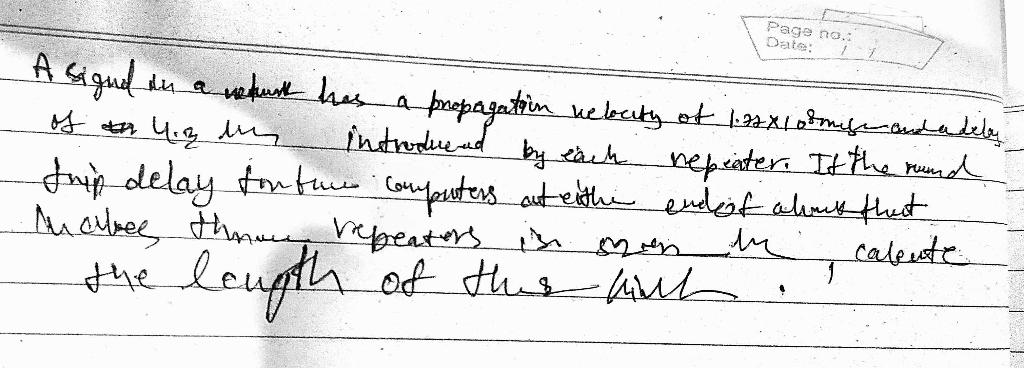 Page no.:
Date: / /
A signal in a network has a propagation velocity of 1.77x10^8 m/s and a delay
of 4.2 introduced by each repeater. If the round
trip delay for two computers at either end of a link that
three repeaters is
the length of this link.